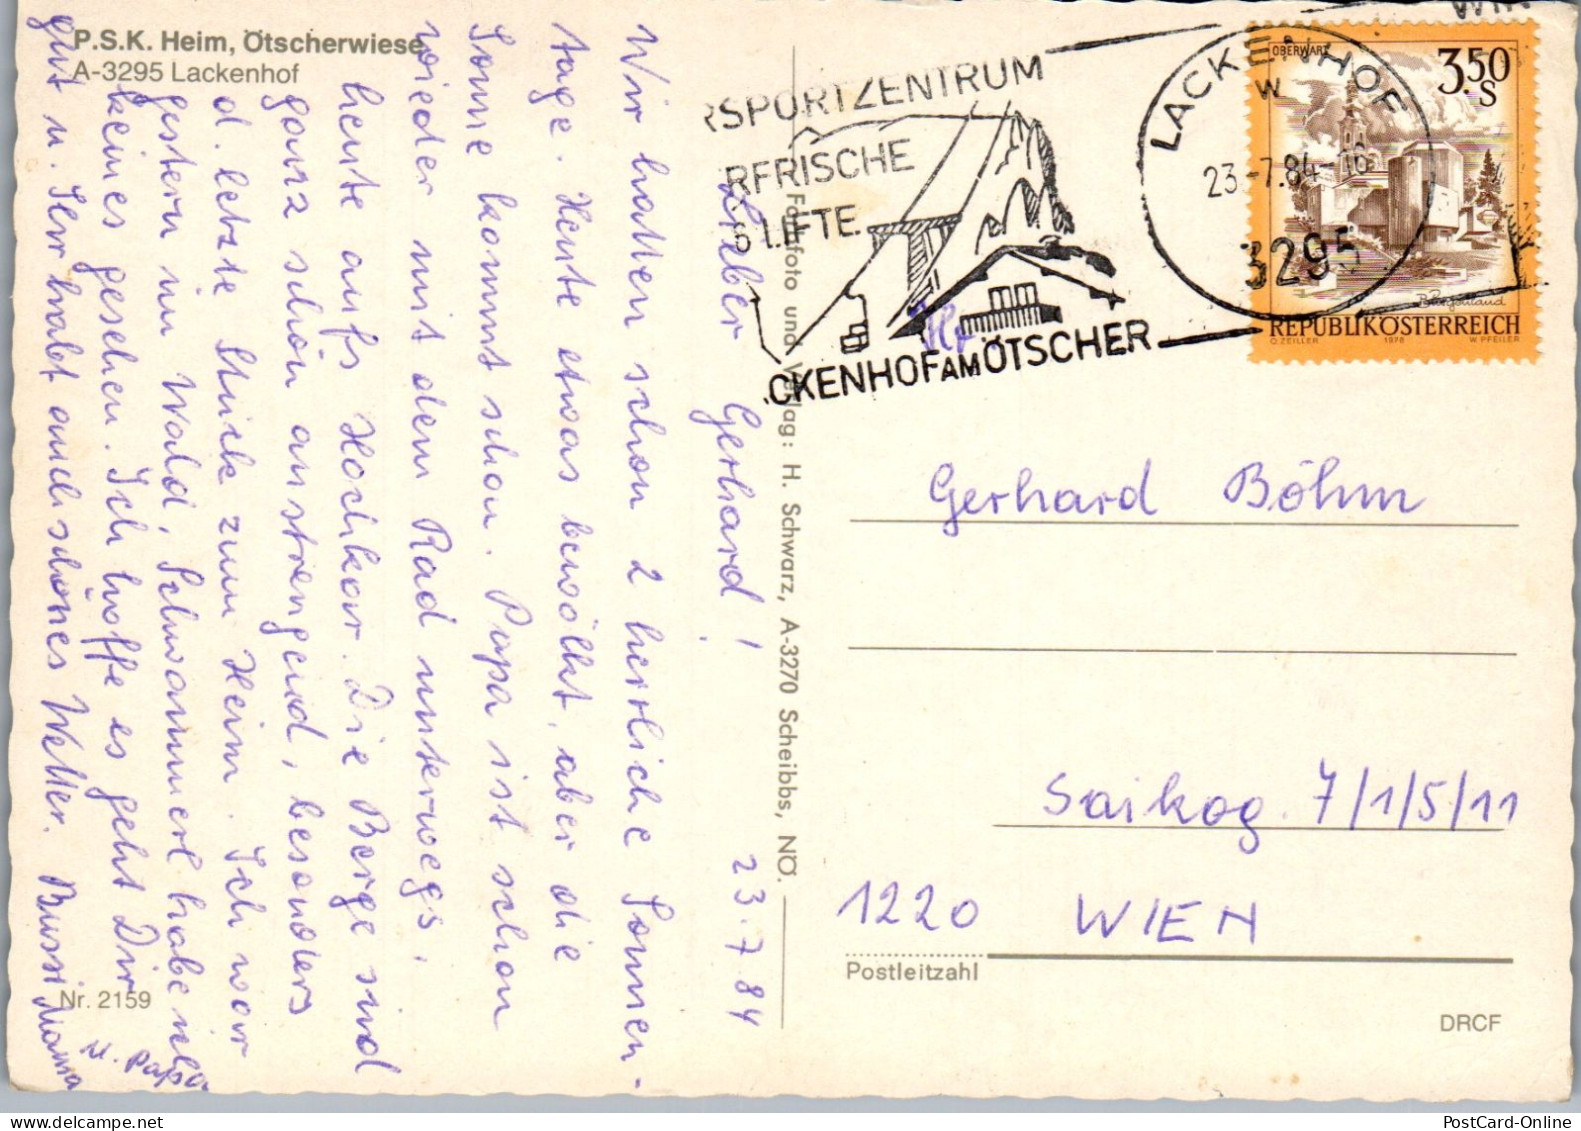 P.S.K. Heim, Ötscherwiese
A-3295 Lackenhof
23.7.84
Lieber Gerhard!
Wir hatten schon 2 herrliche Sonnen-
tage. Heute etwas bewölkt, aber die
Sonne kommt schon. Papa ist schon
wieder mit dem Rad unterwegs,
heute aufs Hochkar. Die Berge sind
ganz schön anstrengend, besonders
d. letzte Stück zum Heim. Ich war
gestern im Wald, Schwammerl habe ich
keines gesehen. Ich hoffe es geht Dir
gut u. Ihr habt auch schönes Wetter. Bussi Mama
u. Papa
Nr. 2159
Farbfoto und Verlag: H. Schwarz, A-3270 Scheibbs, NÖ.
RSPORTZENTRUM
RFRISCHE
LIFTE
CKENHOF AM ÖTSCHER
LACKENHOF
W
23.-7.84-16
3295
OBERWART
3.50
S
Burgenland
REPUBLIK ÖSTERREICH
O. ZEILLER 1978 W. PFEILER
Hr
Gerhard Böhm
Saikog. 7/1/5/11
1220 WIEN
Postleitzahl
DRCF
PostCard-Online